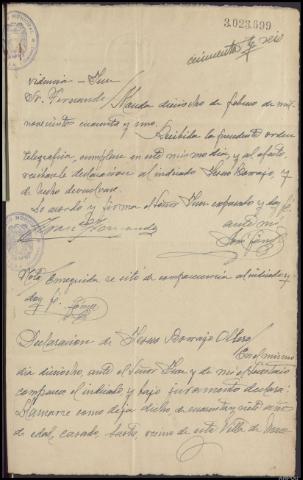 3.023.699
cincuenta y seis
videncia - Juez
Sr. Fernandez Manda dieciocho de febrero de mil
novecientos cuarenta y uno.
Recibida la precedente orden
telegráfica, cumplase en este mismo dia, y al efecto,
recibasele declaracion al indicado Borrajo, y
de hecho devuelvase.
Lo acordó y firma el Señor Juez expresado y doy fé.
ante mi
Nota Enseguida se citó de comparecencia al indicado y
doy fé.
Declaracion de Borrajo
En el mismo
dia dieciocho, ante el Señor Juez y de mi el Secretario
comparece el indicado y bajo juramento declara:
Llamarse como deja dicho, de cuarenta y siete años
de edad, casado, vecino de esta Villa de